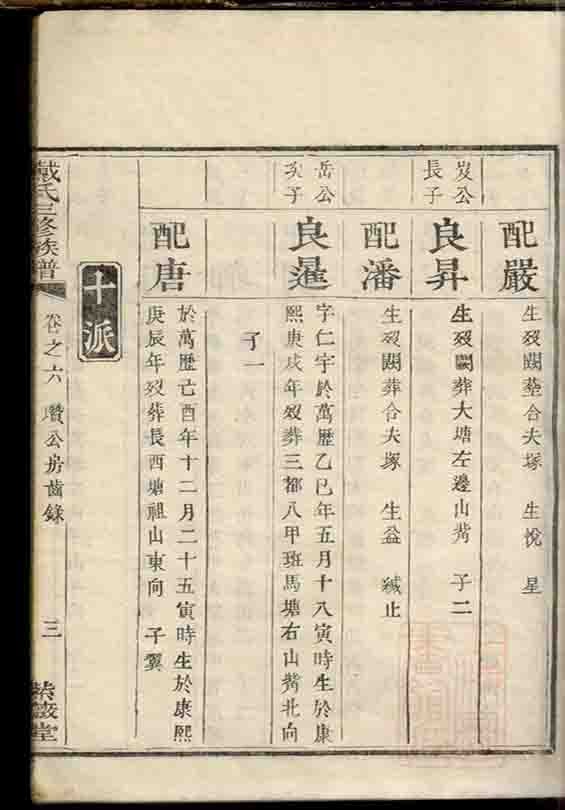 配嚴
生歿闕塟合夫塚 生悅 星
岌公長子
良昇
生歿闕葬大塘左邊山觜 子二
配潘
生歿闕葬合夫塚 生益 緎止
岳公次子
良暹
字仁宇於萬歷乙巳年五月十八寅時生於康
熙庚戌年歿葬三都八甲班馬塘右山觜北向
子一
配唐
於萬歷己酉年十二月二十五寅時生於康熙
庚辰年歿葬長西塘祖山東向 子翼
十派
戴氏三修族譜
卷之六 瓚公房齒錄
三
紫誥堂